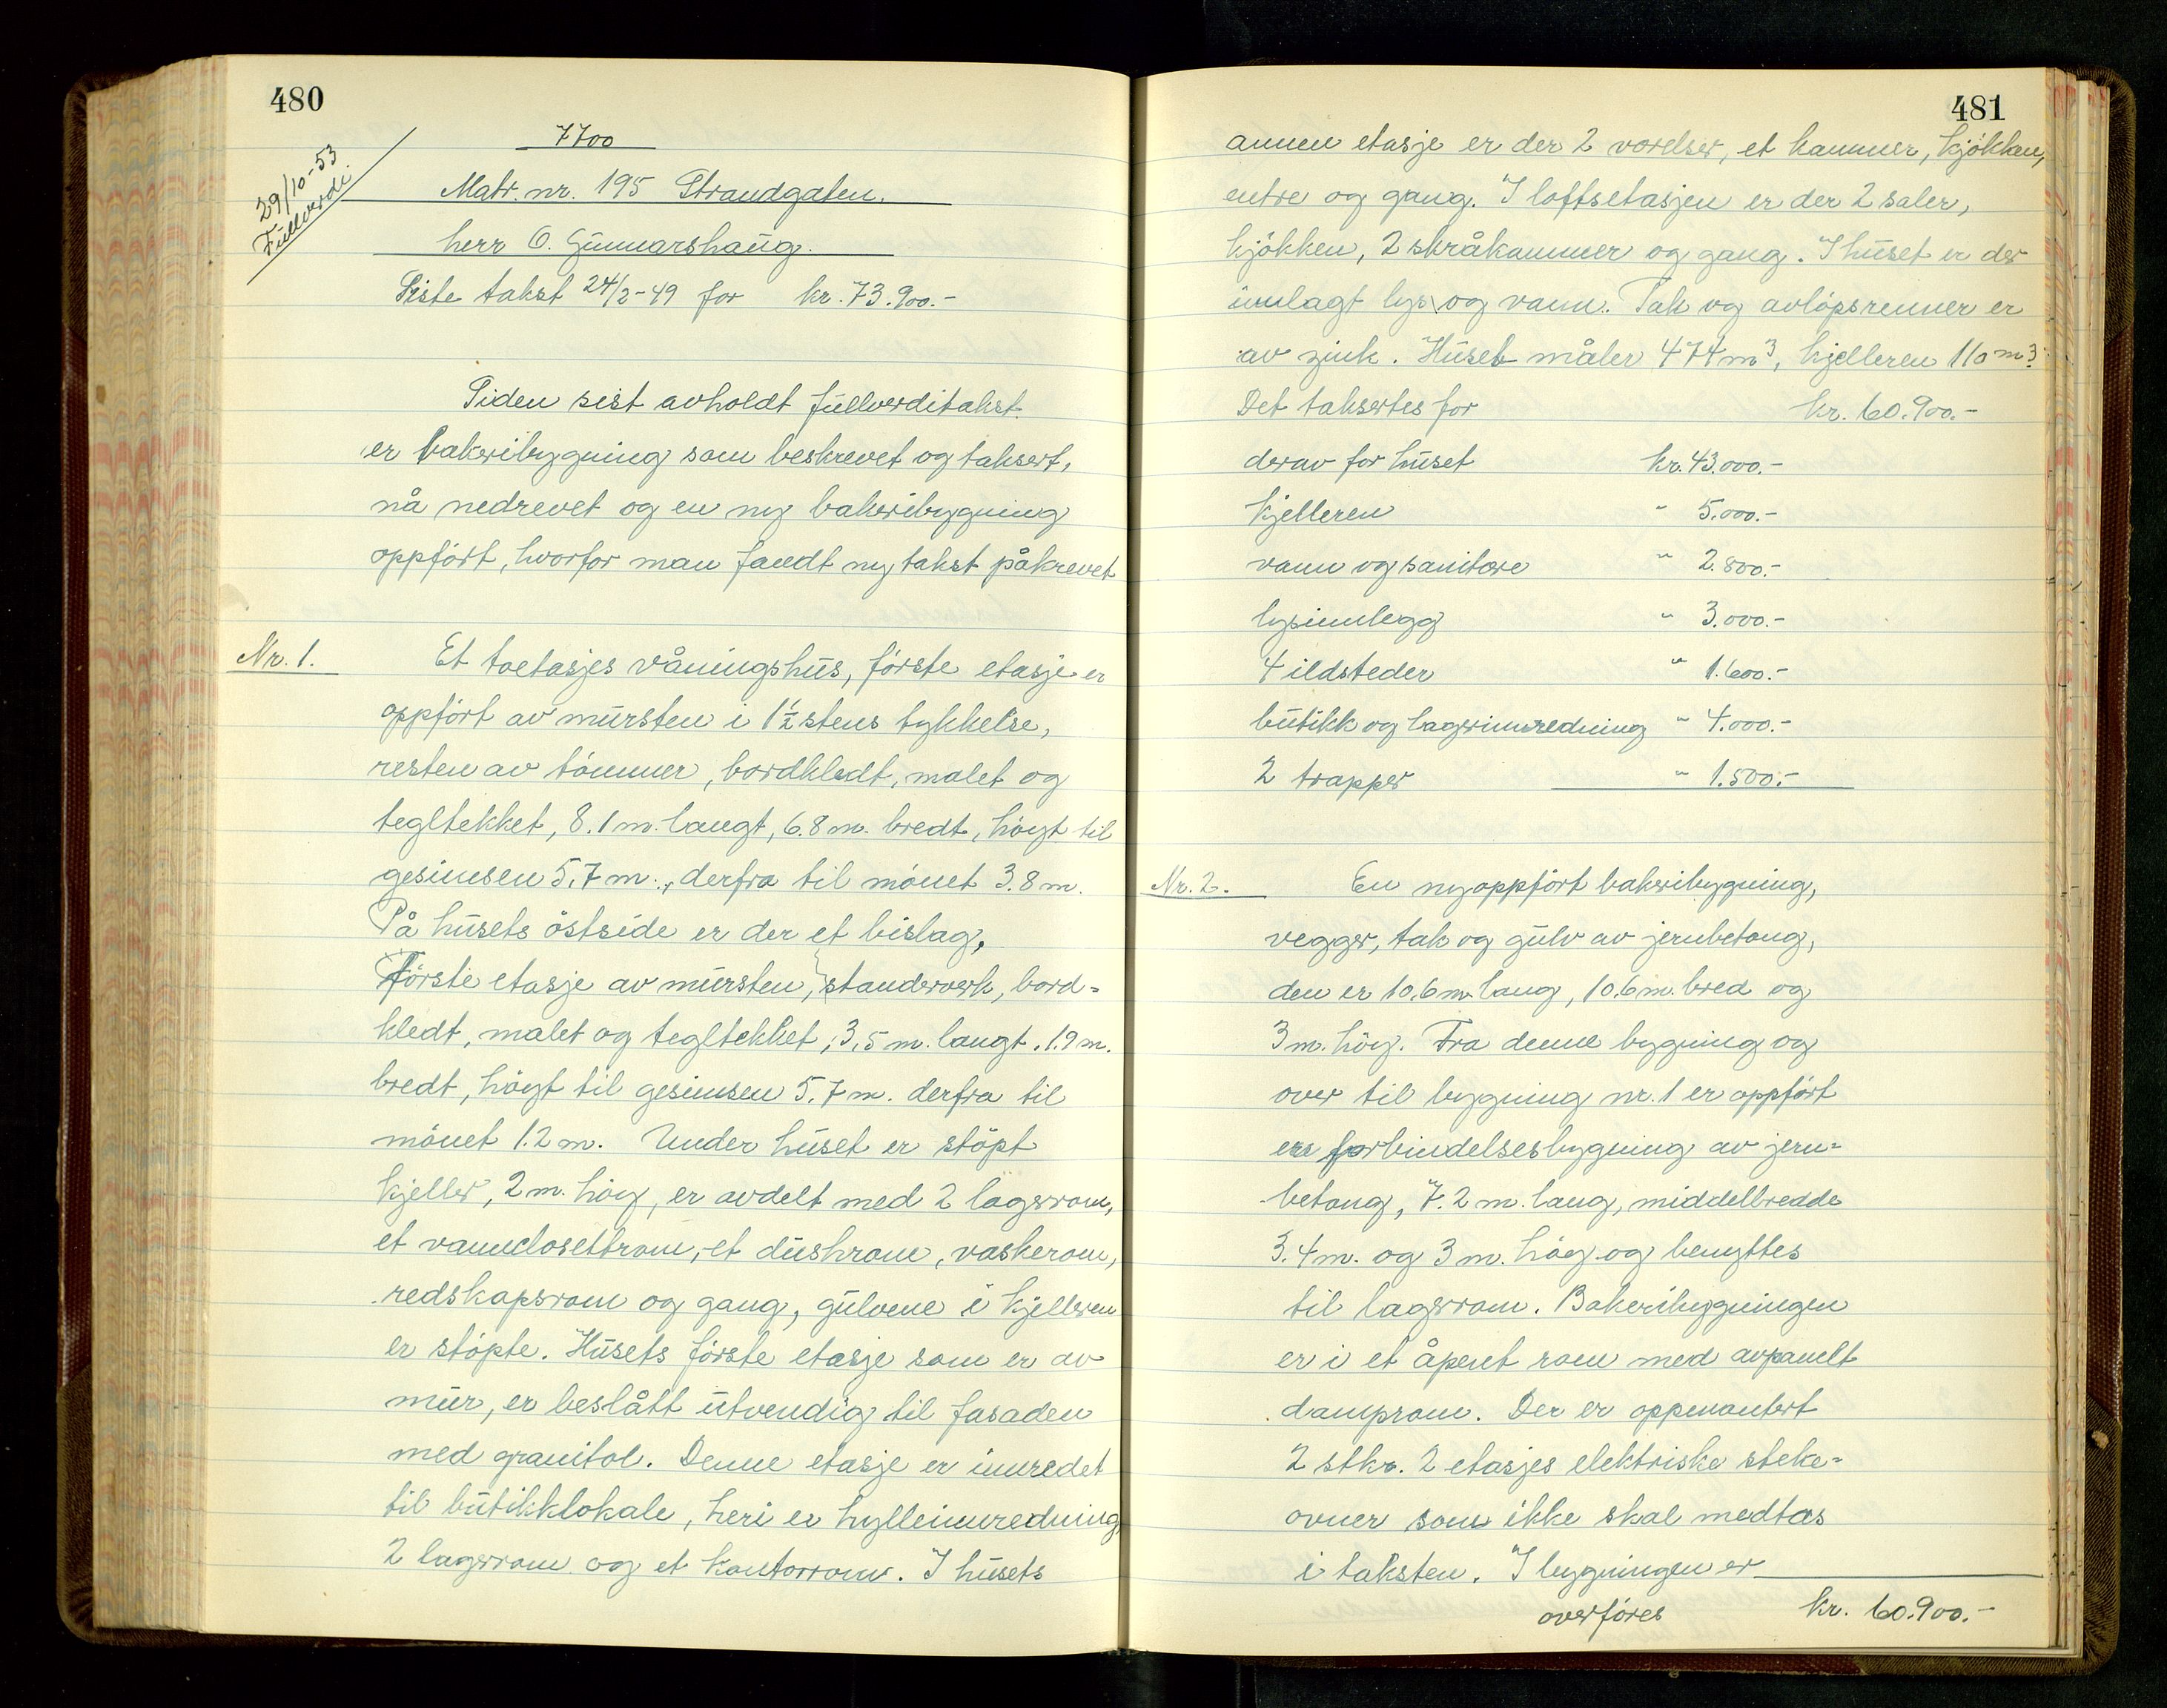 480
7700
29/10-53
Fullverdi.
Matr. nr. 195 Strandgaten.
herr O. Gunnarshaug.
Siste takst 24/2-49 for kr. 73.900.-
Siden sist avholdt fullverditakst
er bakeribygning som beskrevet og taksert,
nå nedrevet og en ny bakeribygning
oppført, hvorfor man fandt ny takst påkrevet
Nr. 1. Et toetasjes våningshus, förste etasje er
oppfört av mursten i 1½ stens tykkelse,
resten av tömmer, bordkledt, malet og
tegltekket, 8.1 m. langt, 6.8 m. bredt, höyt til
gesimsen 5.7 m., derfra til mönet 3.8 m.
På husets östside er der et bislag,
Förste etasje av mursten, standerverk, bord=
kledt, malet og tegltekket, 3,5 m. langt, 1.9 m.
bredt, höyt til gesimsen 5.7 m. derfra til
mönet 1.2 m. Under huset er stöpt
kjeller, 2 m. höy, er avdelt med 2 lagerrom,
et vannclosettrom, et dusjrom, vaskerom,
redskapsrom og gang, gulvene i kjelleren
er stöpte. Husets förste etasje som er av
mur, er beslått utvendig til fasaden
med granitol. Denne etasje er innredet
til butikklokale, heri er hylleinnredning
2 lagerrom og et kontorrom. I husets
481
annen etasje er der 2 værelser, et kammer, kjökken,
entre og gang. I loftsetasjen er der 2 saler,
kjökken, 2 skråkammer og gang. I huset er der
innlagt lys og vann. Tak og avlöpsrenner er
av zink. Huset måler 474 m³, kjelleren 110 m³.
Det taksertes for kr. 60.900.-
derav for huset kr. 43.000.-
kjelleren " 5.000.-
vann og sanitære " 2.800.-
lysinnlegg " 3.000.-
4 ildsteder " 1.600.-
butikk og lagerinnredning " 4.000.-
2 trapper " 1.500.-
Nr. 2. En nyoppfört bakeribygning,
vegger, tak og gulv av jernbetong,
den er 10.6 m. lang, 10.6 m. bred og
3 m. höy. Fra denne bygning og
over til bygning nr. 1 er oppfört
en forbindelsesbygning av jern=
betong, 7.2 m. lang, middelbredde
3.4 m. og 3 m. höy og benyttes
til lagerrom. Bakeribygningen
er i et åpent rom med avpanelt
damprom. Der er oppmontert
2 stkr. 2 etasjes elektriske steke=
ovner som ikke skal medtas
i taksten. I bygningen er
overföres kr. 60.900.-